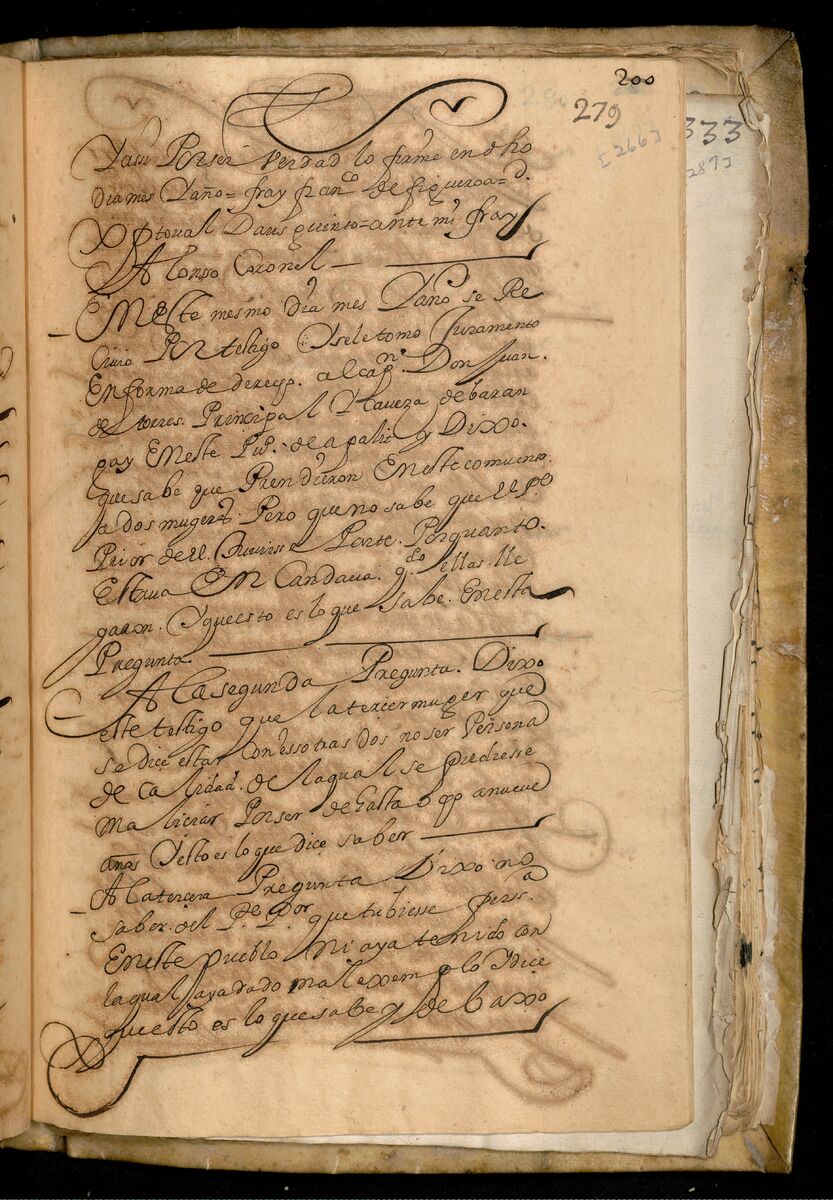 200
279
[266]
333
287]
Yassi Por ser Verdad lo firme en dho
dia mes Yaño = fray fran.co de figueroa = d.
Xptoual Daus quinto = ante mi fray
Alonso Coronel
En Este mesmo dia mes Yaño se Re
ciuio Por testigo Yse le tomo Juramento
En forma de derecho. al capn. Don Juan.
de torres. Principal Ycaueza de baran
gay En este Pu.o de apalit y Dixo.
que sabe que Prendieron En este conuento.
a dos mugeres. Pero que no sabe que el P.e
Prior de el. Tuuiesse Parte. Porquanto.
Estaua En Candaua. q.do ellas. lle
garon. Yque esto es lo que sabe. En esta
Pregunta.
A la segunda Pregunta. Dixo
este testigo que la tercer muger que
se dice estar Con essotras dos no ser Persona
de calidad. de la qual se pudiesse
maliciar Por ser de hasta ocho a nueue
años Yesto es lo que dice saber
A la tercera Pregunta Dixo no
saber. del P.e P.or que tubiesse pers.a
En este pueblo ni aya tenido con
la qual aya dado mal exemplo Ydice
que esto es lo que sabe y de baxo